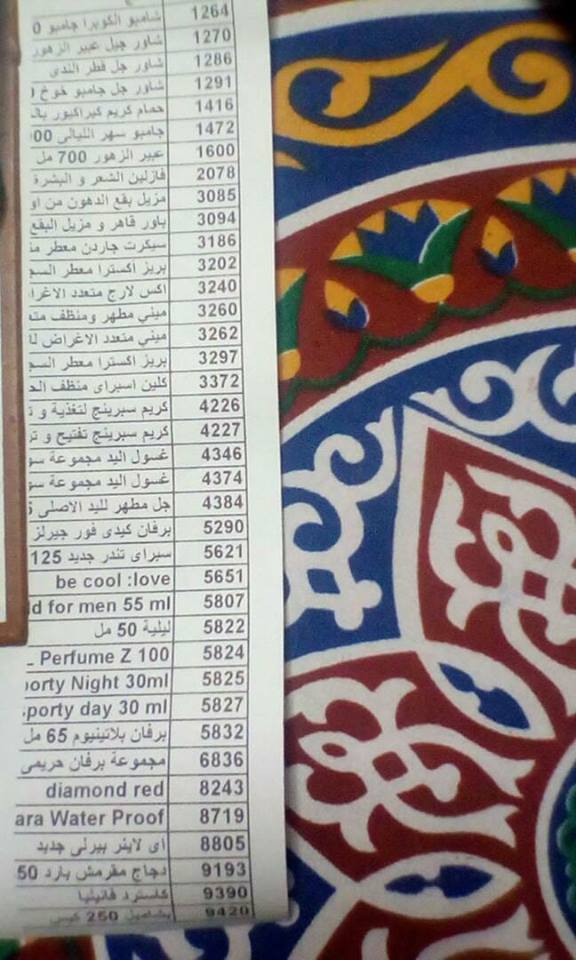 شامبو الكوبرا جامبو 1264
شاور جيل عبير الزهور 1270
شاور جل قطر الندى 1286
شاور جل جامبو خوخ 1291
حمام كريم كيراكيور 1416
جامبو سهر الليالى 1472
عبير الزهور 700 مل 1600
فازلين الشعر و البشرة 2078
مزيل بقع الدهون من 3085
باور قاهر و مزيل البقع 3094
سيكرت جاردن معطر 3186
بريز اكسترا معطر 3202
اكس لارج متعدد 3240
ميني مطهر ومنظف 3260
ميني متعدد الاغراض 3262
بريز اكسترا معطر 3297
كلين اسبراى منظف 3372
كريم سبرينج لتغذية و 4226
كريم سبرينج تفتيح و 4227
غسول اليد مجموعة 4346
غسول اليد مجموعة 4374
جل مطهر لليد الاصلى 4384
برفان كيدى فور جيرلز 5290
سبراى تندر جديد 125 5621
be cool :love 5651
d for men 55 ml 5807
ليلية 50 مل 5822
Perfume Z 100 5824
orty Night 30ml 5825
porty day 30 ml 5827
برفان بلاتينيوم 65 مل 5832
مجموعة برفان حريمى 6836
diamond red 8243
ara Water Proof 8719
اى لاينر بيرلى جديد 8805
دجاج مقرمش بارد 9193
كاسترد فانيليا 9390
بشاميل 250 9420